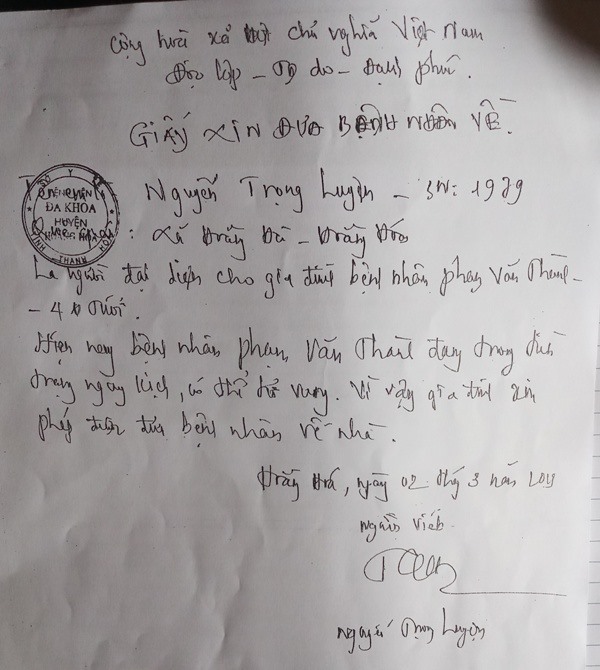 Cộng hoà xã hội chủ nghĩa Việt Nam
Độc lập - Tự do - Hạnh phúc.
GIẤY XIN ĐƯA BỆNH NHÂN VỀ.
Nguyễn Trọng Luyện - SN: 1979
SỞ Y TẾ
BỆNH VIỆN
ĐA KHOA
HUYỆN
TỈNH THANH HÓA
: Xã Hoằng Hà - Hoằng Hóa
Là người đại diện cho gia đình bệnh nhân phạm Văn Thành -
- 40 tuổi.
Hiện nay bệnh nhân phạm Văn Thành đang trong tình
trạng nguy kịch, có thể tử vong. Vì vậy gia đình xin
phép được đưa bệnh nhân về nhà.
Hoằng Hoá, ngày 02 thg 3 năm 2013
Người viết
Nguyễn Trọng Luyện